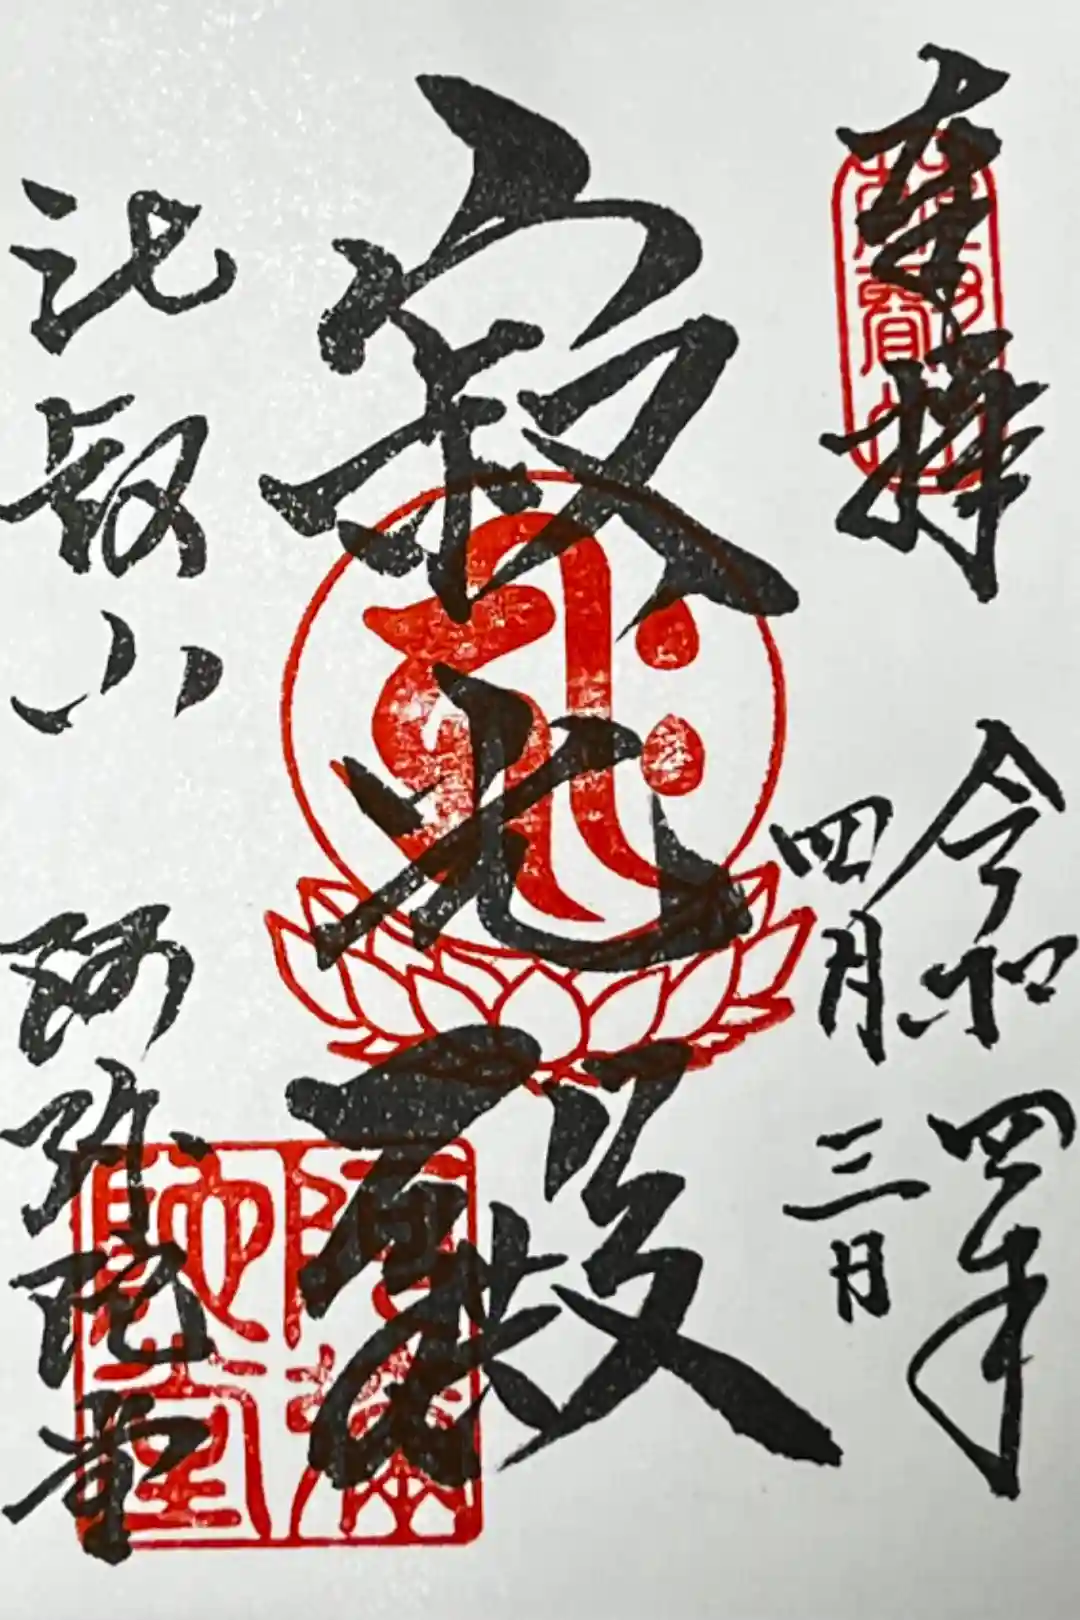 奉拝
令和四年
四月三日
寂光殿
比叡山 阿弥陀堂
阿弥陀堂